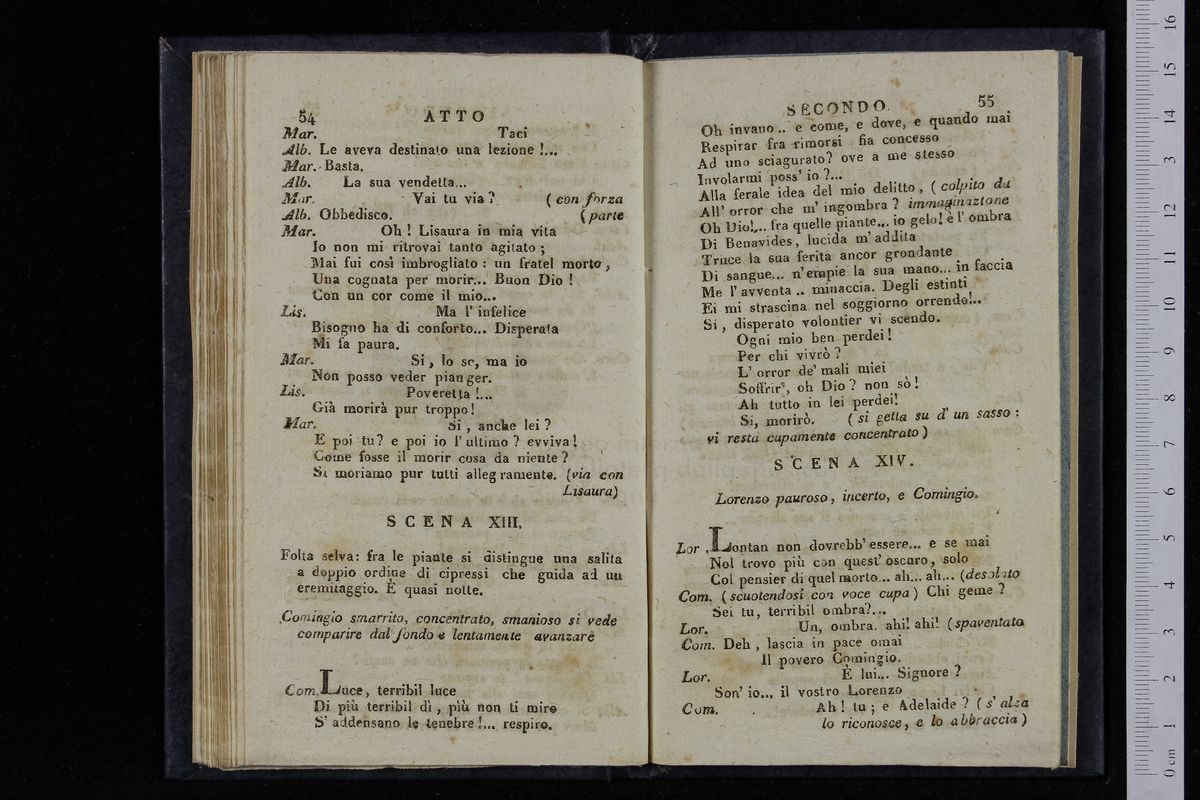 54 ATTO
Mar. Taci
Alb. Le aveva destinato una lezione !...
Mar. Basta.
Alb. La sua vendetta...
Mar. Vai tu via ? ( con forza
Alb. Obbedisco. ( parte
Mar. Oh ! Lisaura in mia vita
Io non mi ritrovai tanto agitato ;
Mai fui così imbrogliato : un fratel morto ,
Una cognata per morir... Buon Dio !
Con un cor come il mio...
Lis. Ma l' infelice
Bisogno ha di conforto... Disperata
Mi fa paura.
Mar. Si , lo so, ma io
Non posso veder pianger.
Lis. Poveretta !...
Già morirà pur troppo !
Mar. Si , anche lei ?
E poi tu ? e poi io l' ultimo ? evviva !
Come fosse il morir cosa da niente ?
Si moriamo pur tutti allegramente. (via con
Lisaura)
SCENA XIII.
Folta selva: fra le piante si distingue una salita
a doppio ordine di cipressi che guida ad un
eremitaggio. È quasi notte.
Comingio smarrito, concentrato, smanioso si vede
comparire dal fondo e lentamente avanzare
Com. Luce, terribil luce
Di più terribil dì , più non ti miro
S' addensano le tenebre !... respiro.
SECONDO. 55
Oh invano .. e come, e dove, e quando mai
Respirar fra rimorsi fia concesso
Ad uno sciagurato? ove a me stesso
Involarmi poss' io ?...
Alla ferale idea del mio delitto , ( colpito da
All' orror che m' ingombra ? immaginazione
Oh Dio!... fra quelle piante... io gelo! è l' ombra
Di Benavides, lucida m' addita
Truce la sua ferita ancor grondante
Di sangue... n' empie la sua mano... in faccia
Me l' avventa .. minaccia. Degli estinti
Ei mi strascina nel soggiorno orrendo!..
Si , disperato volontier vi scendo.
Ogni mio ben perdei !
Per chi vivrò ?
L' orror de' mali miei
Soffrir, oh Dio ? non sò !
Ah tutto in lei perdei!
Si, morirò. ( si getta su d' un sasso :
vi resta cupamente concentrato )
SCENA XIV.
Lorenzo pauroso , incerto, e Comingio.
Lor. Lontan non dovrebb' essere... e se mai
Nol trovo più con quest' oscuro, solo
Col pensier di quel morto... ah... ah... (desolato
Com. ( scuotendosi con voce cupa ) Chi geme ?
Sei tu, terribil ombra?...
Lor. Un, ombra. ahi! ahi! ( spaventato
Com. Deh , lascia in pace omai
Il povero Comingio.
Lor. È lui... Signore ?
Son' io... il vostro Lorenzo
Com. Ah ! tu ; e Adelaide ? ( s' alza
lo riconosce, e lo abbraccia )
0 cm 1 2 3 4 5 6 7 8 9 10 11 12 13 14 15 16